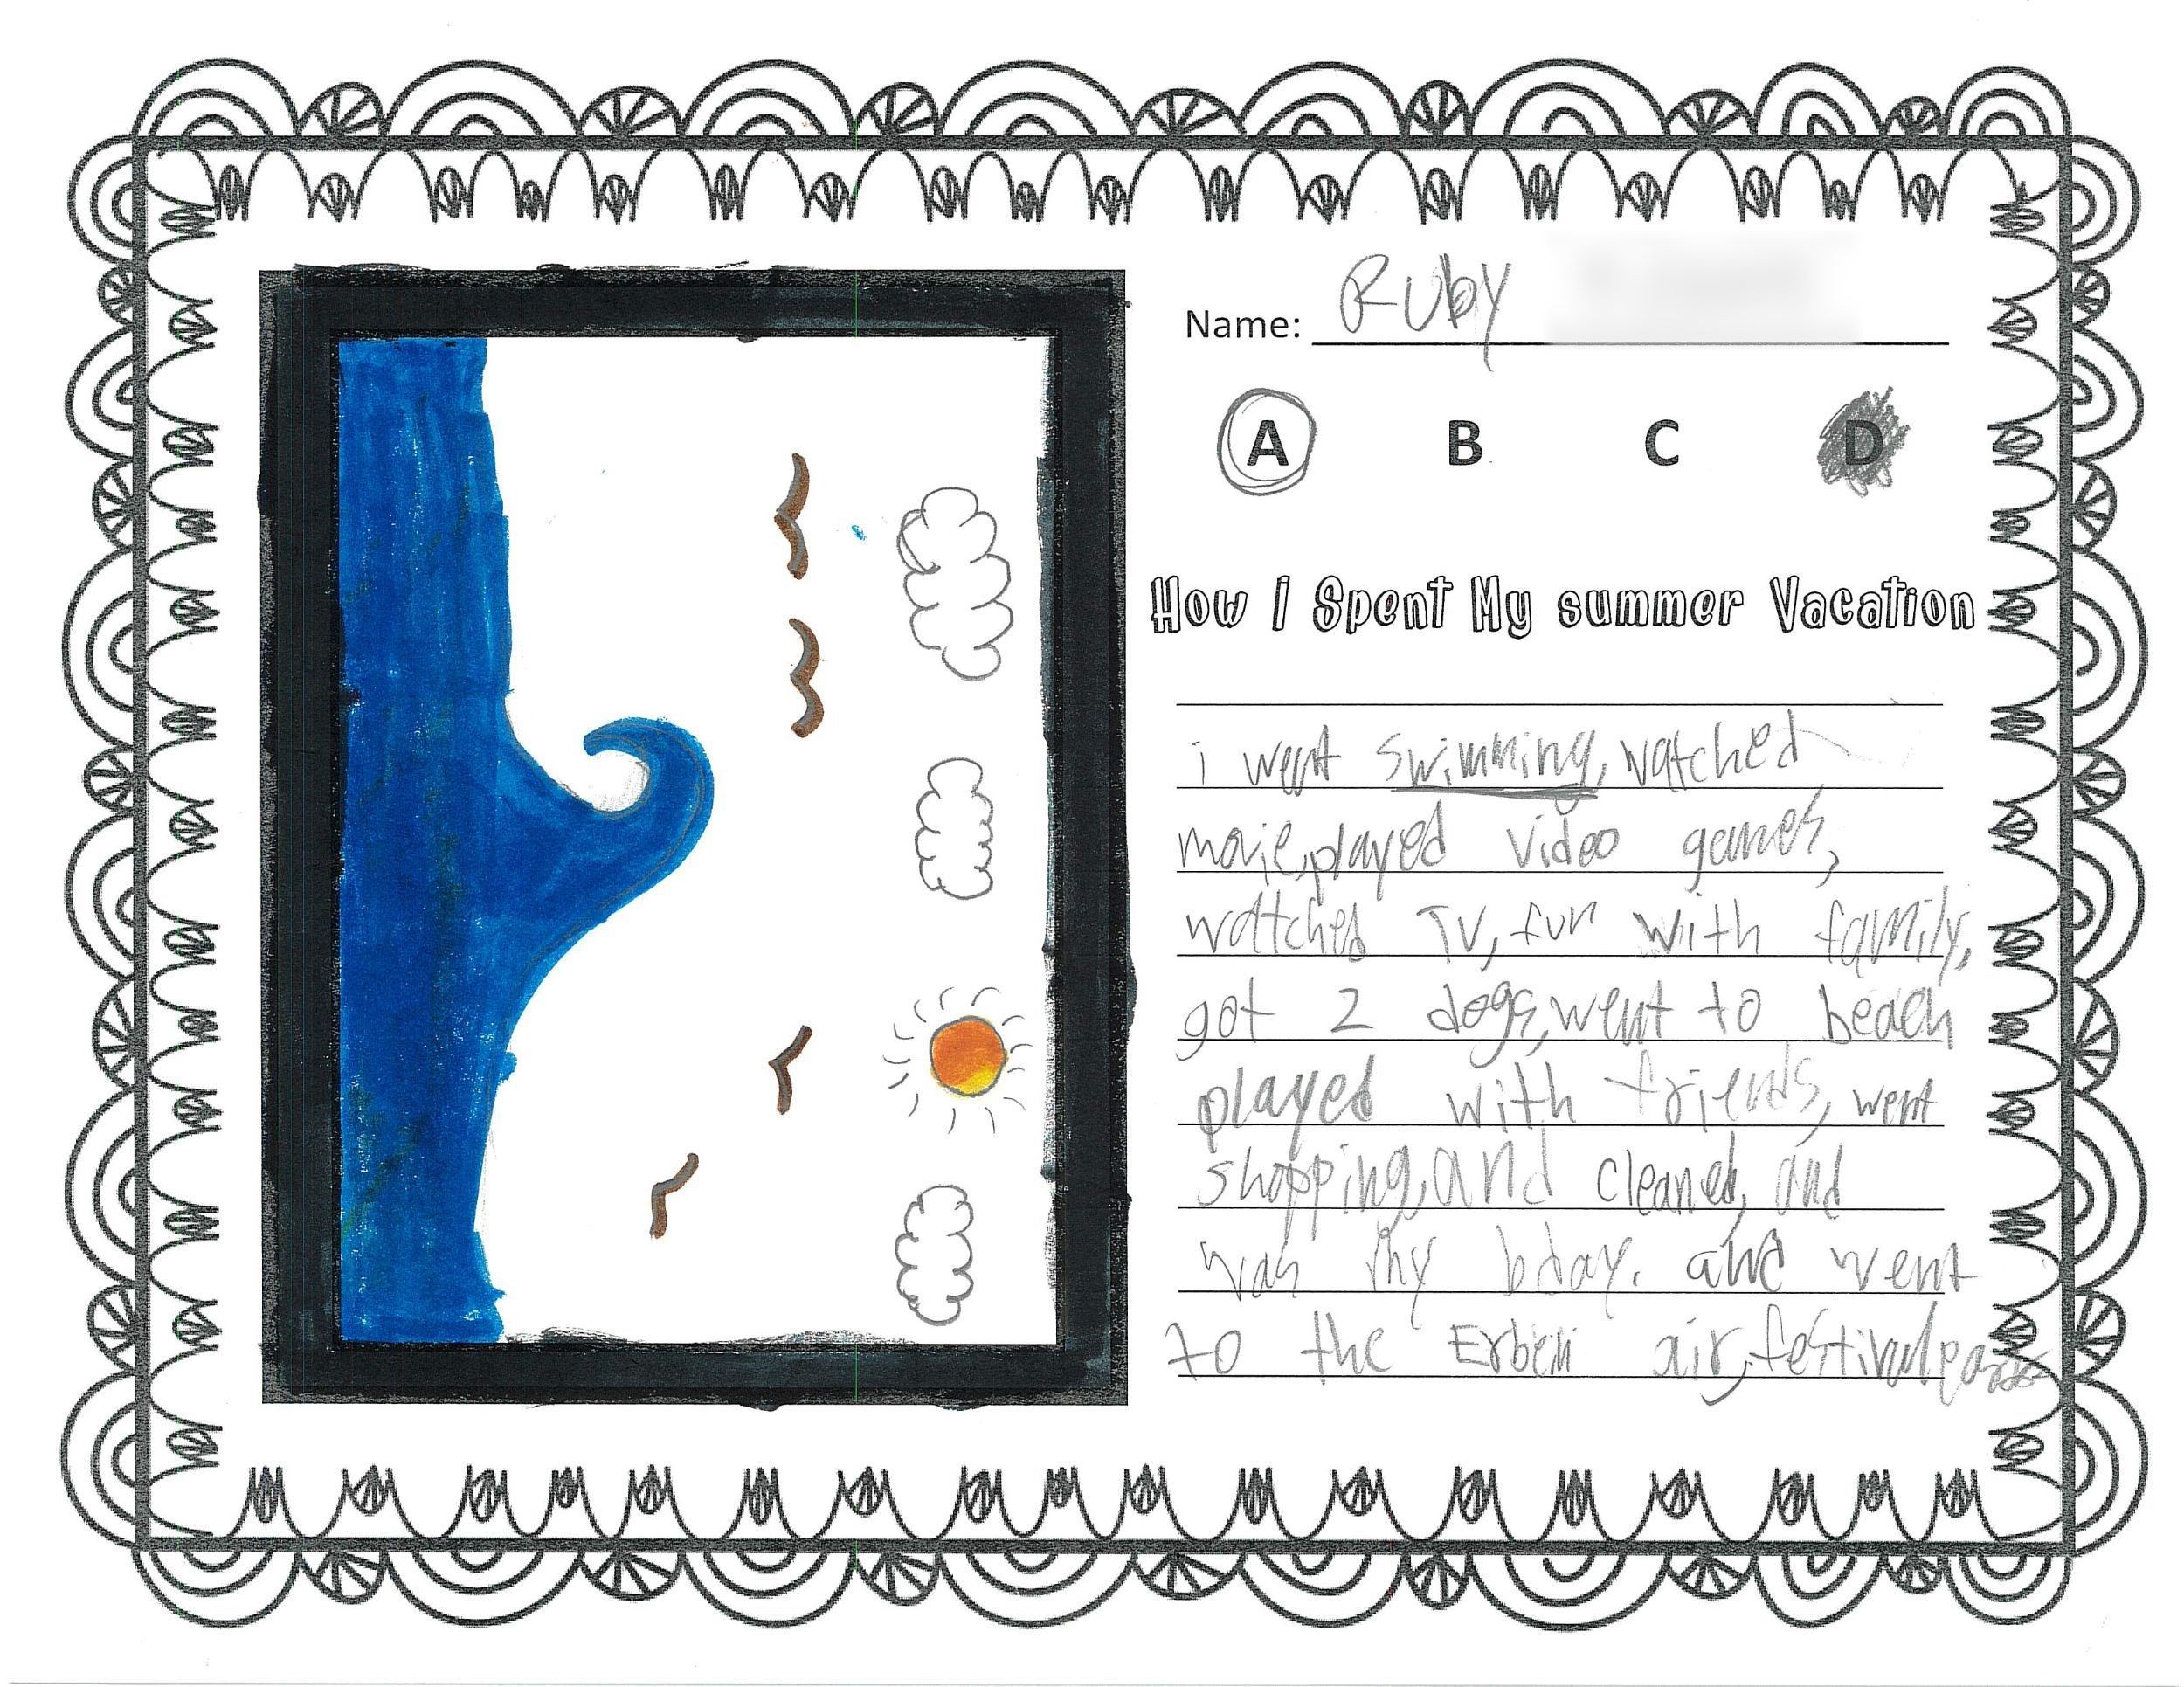 Name: Ruby
A B C D
How I Spent My summer Vacation
i went swimming, watched
movie, played video games,
watched TV, fun with family,
got 2 dogs, went to beach
played with friends, went
shopping, and cleaned, and
was my bday. and went
to the air, festival